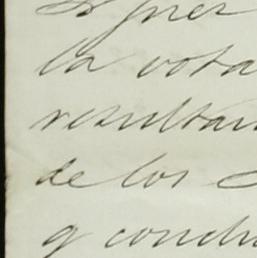 la vota
resultan
de los
y conclu